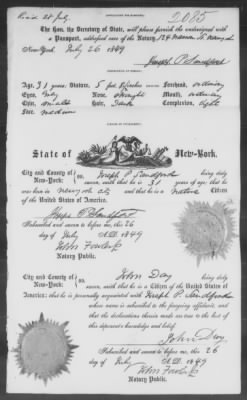 Recd 28 July.
2085
The Hon. the Secretary of State, will please furnish the undersigned with
a Passport, addressed care of the Notary, 124 Nassau St.
New-York July 26 1849
Joseph P Sandford
Age, 31 years. Stature, 5 feet inches Forehead, ordinary
Eyes, Nose, straight Mouth, ordinary
Chin, small Hair, Dark Complexion, light
Face, medium
State of New-York.
City and County of New-York: Joseph P Sandford being duly
sworn, saith that he is 31 years of age; that he
was born in New York City and that he is a native Citizen
of the United States of America.
Joseph P Sandford
Subscribed and sworn before me, this 26
day of July A.D. 1849
Notary Public.
City and County of New-York: John Day being duly
sworn, saith that he is a Citizen of the United States of
America; that he is personally acquainted with Joseph P. Sandford
whose name is subscribed to the foregoing affidavit; and
that the declarations therein made are true to the best of
this deponent's knowledge and belief.
John Day
Subscribed and sworn before me, this 26
day of July A.D. 1849
Notary Public.